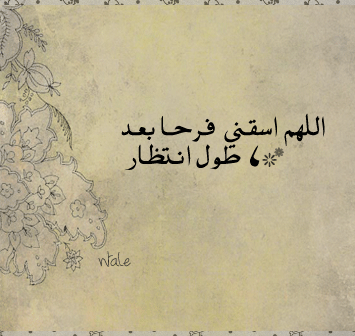 اللهم اسقني فرحا بعد
طول انتظار ،
ntale